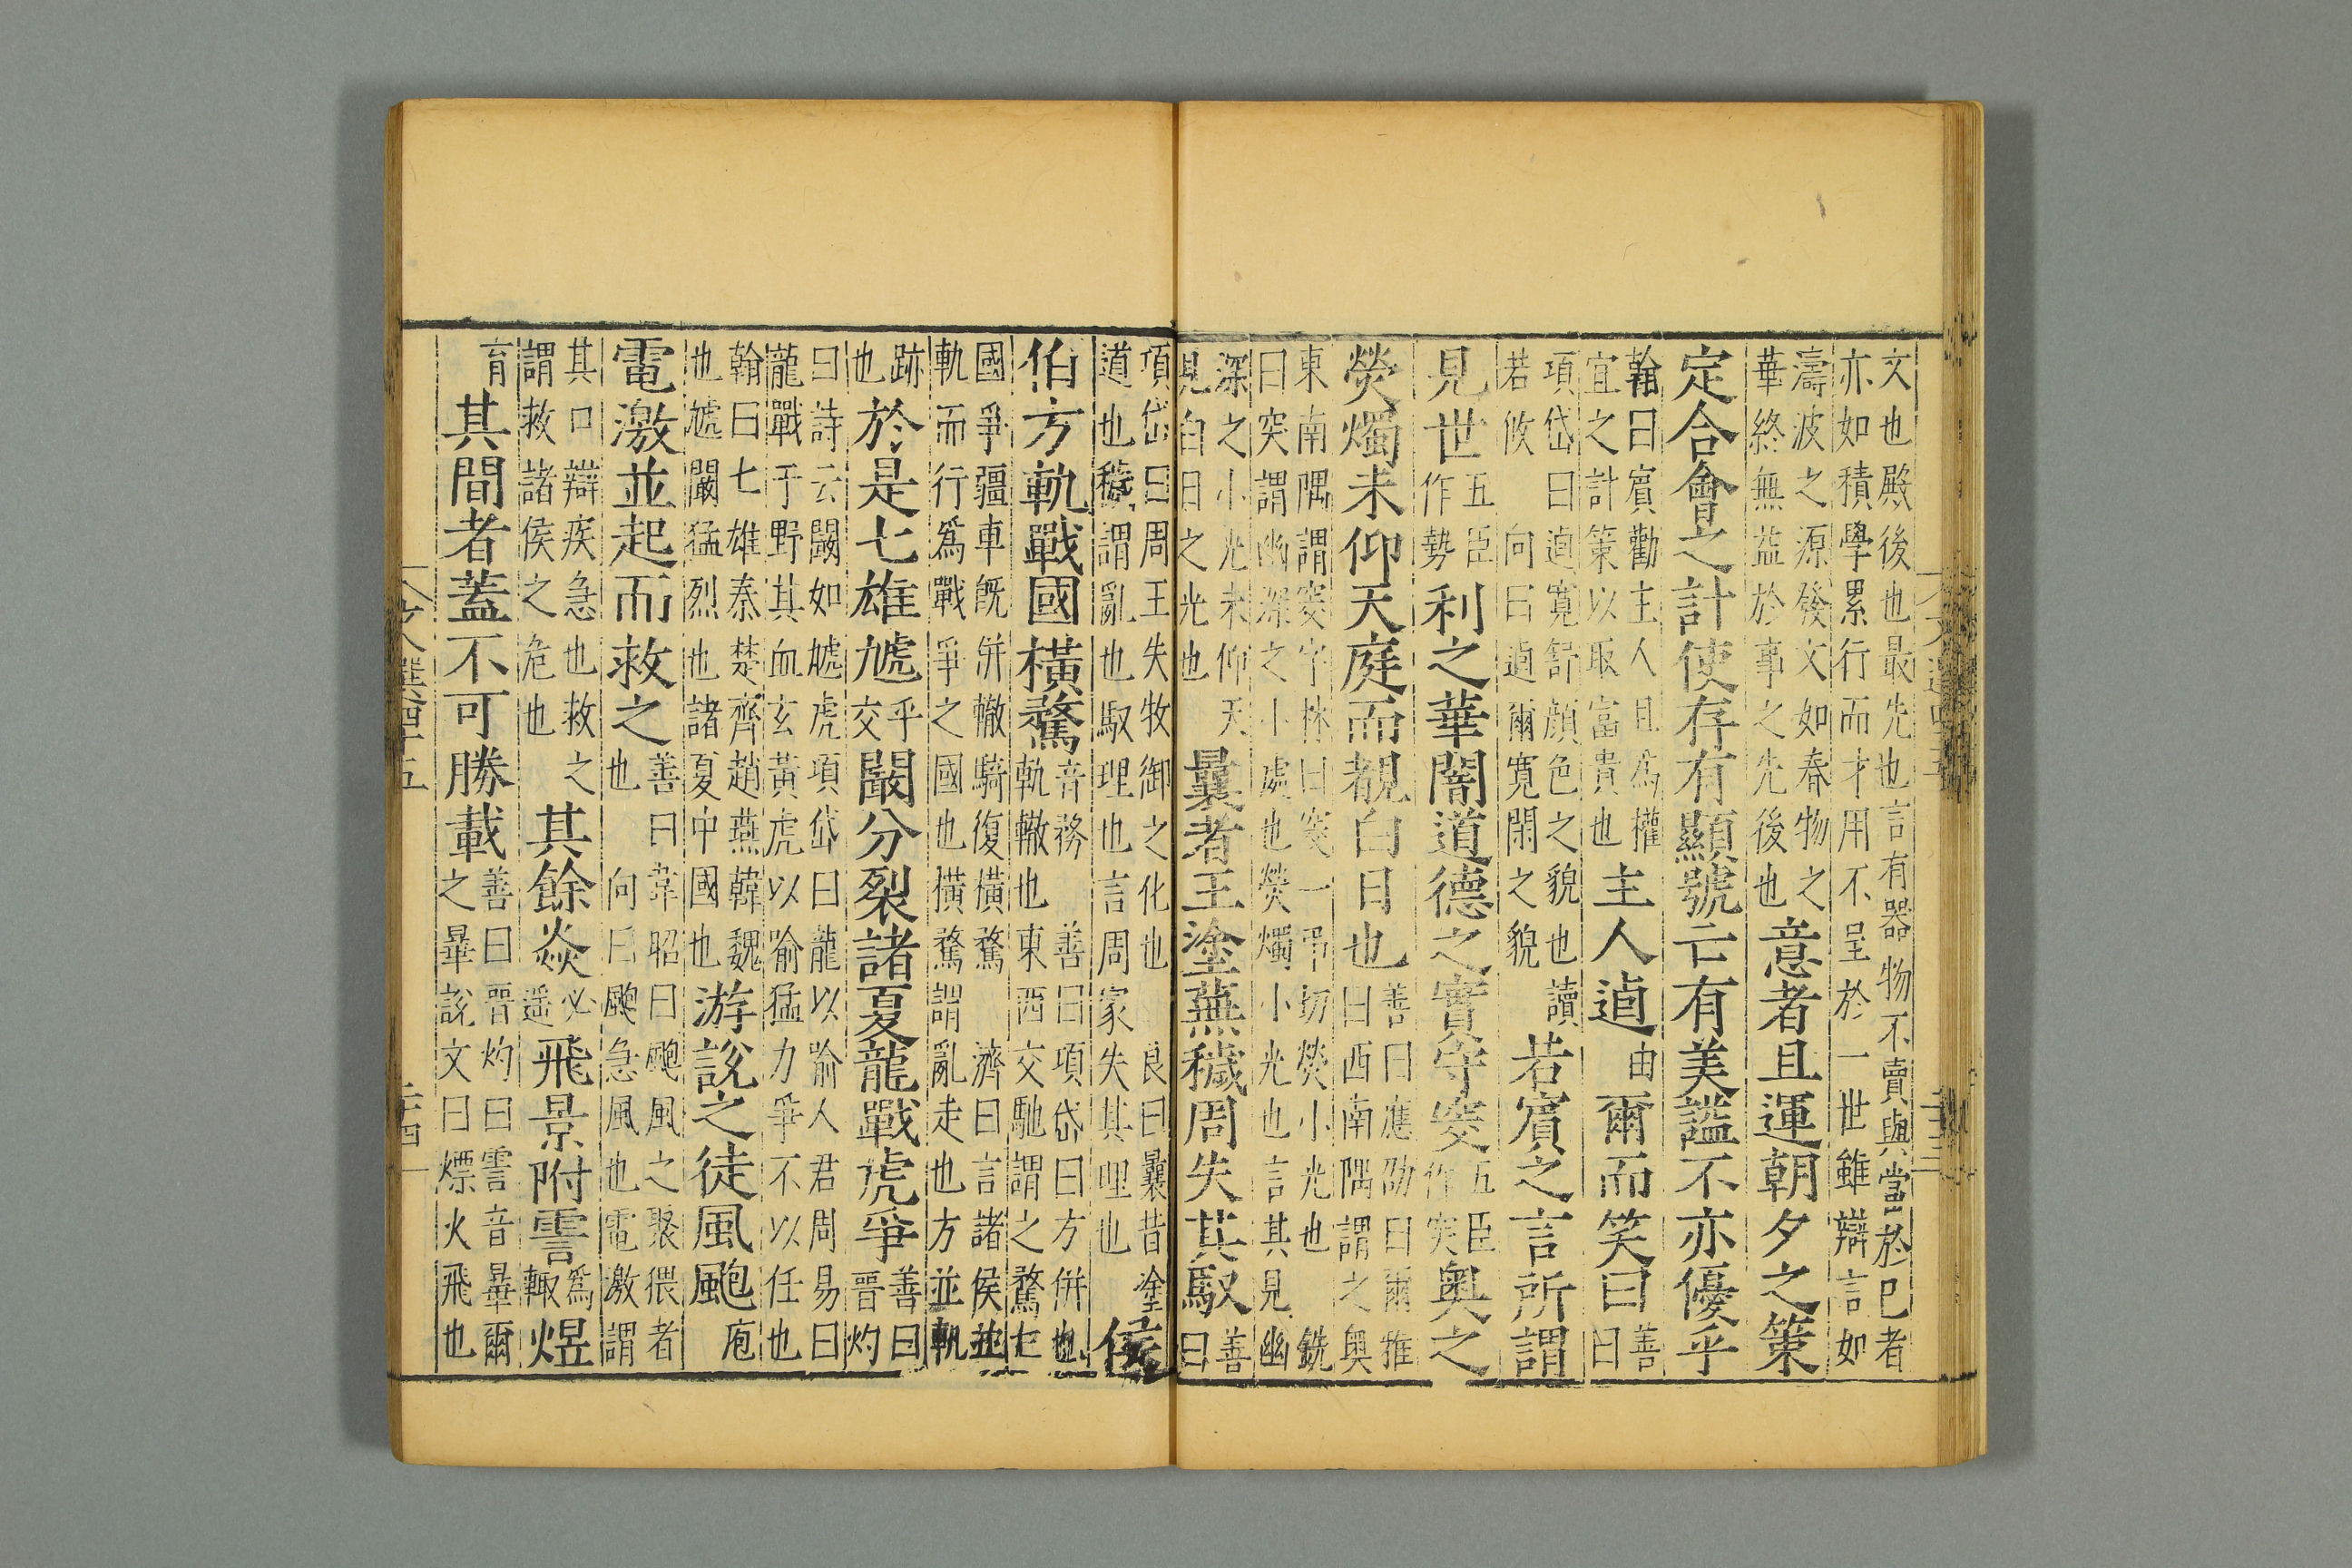 文也殿後也最先也言有器物不賣與當於己者
亦如積學累行而才用不呈於一世雖辯言如
濤波之源發文如春物之華終無益於事之先後也意者且運朝夕之策
定合會之計使存有顯號亡有美謚不亦優乎
翰曰賓勸主人且爲權宜之計策以取富貴也主人逌由爾而笑曰善曰
項岱曰逌寬舒顔色之貌也讀若攸 向曰逌爾寬閑之貌若賓之言所謂
見世五臣作勢利之華闇道德之實守窔五臣作突奥之
熒燭未仰天庭而覩白日也善曰應劭曰爾雅曰西南隅謂之奥
東南隅謂窔字林曰窔一弔切熒小光也 銑
曰突謂幽深之小處也熒燭小光也言其見幽
深之小光未仰天見白日之光也曩者王塗蕪穢周失其馭善曰
項岱曰周王失牧御之化也 良曰曩昔塗道也穢謂亂也馭理也言周家失其理也侯
伯方軌戰國橫騖音務 善曰項岱曰方併也軌轍也東西交馳謂之騖七
國爭彊車旣併轍騎復橫騖 濟曰言諸侯並
軌而行爲戰爭之國也橫騖謂亂走也方並軌
跡也於是七雄虓乎交闞分裂諸夏龍戰虎爭善曰晋灼
曰詩云闞如虓虎項岱曰龍以喻人君周易曰
龍戰于野其血玄黃虎以喻猛力爭不以任也
翰曰七雄秦楚齊趙燕韓魏也虓闞猛烈也諸夏中國也游說之徒風颮庖
電激並起而救之善曰韋昭曰颮風之聚猥者也 向曰颮急風也電激謂
其口辯疾急也救之謂救諸侯之危也其餘猋必遥飛景附霅爲輙煜
育其間者蓋不可勝載善曰晋灼曰霅音曅爾之曅說文曰熛火飛也